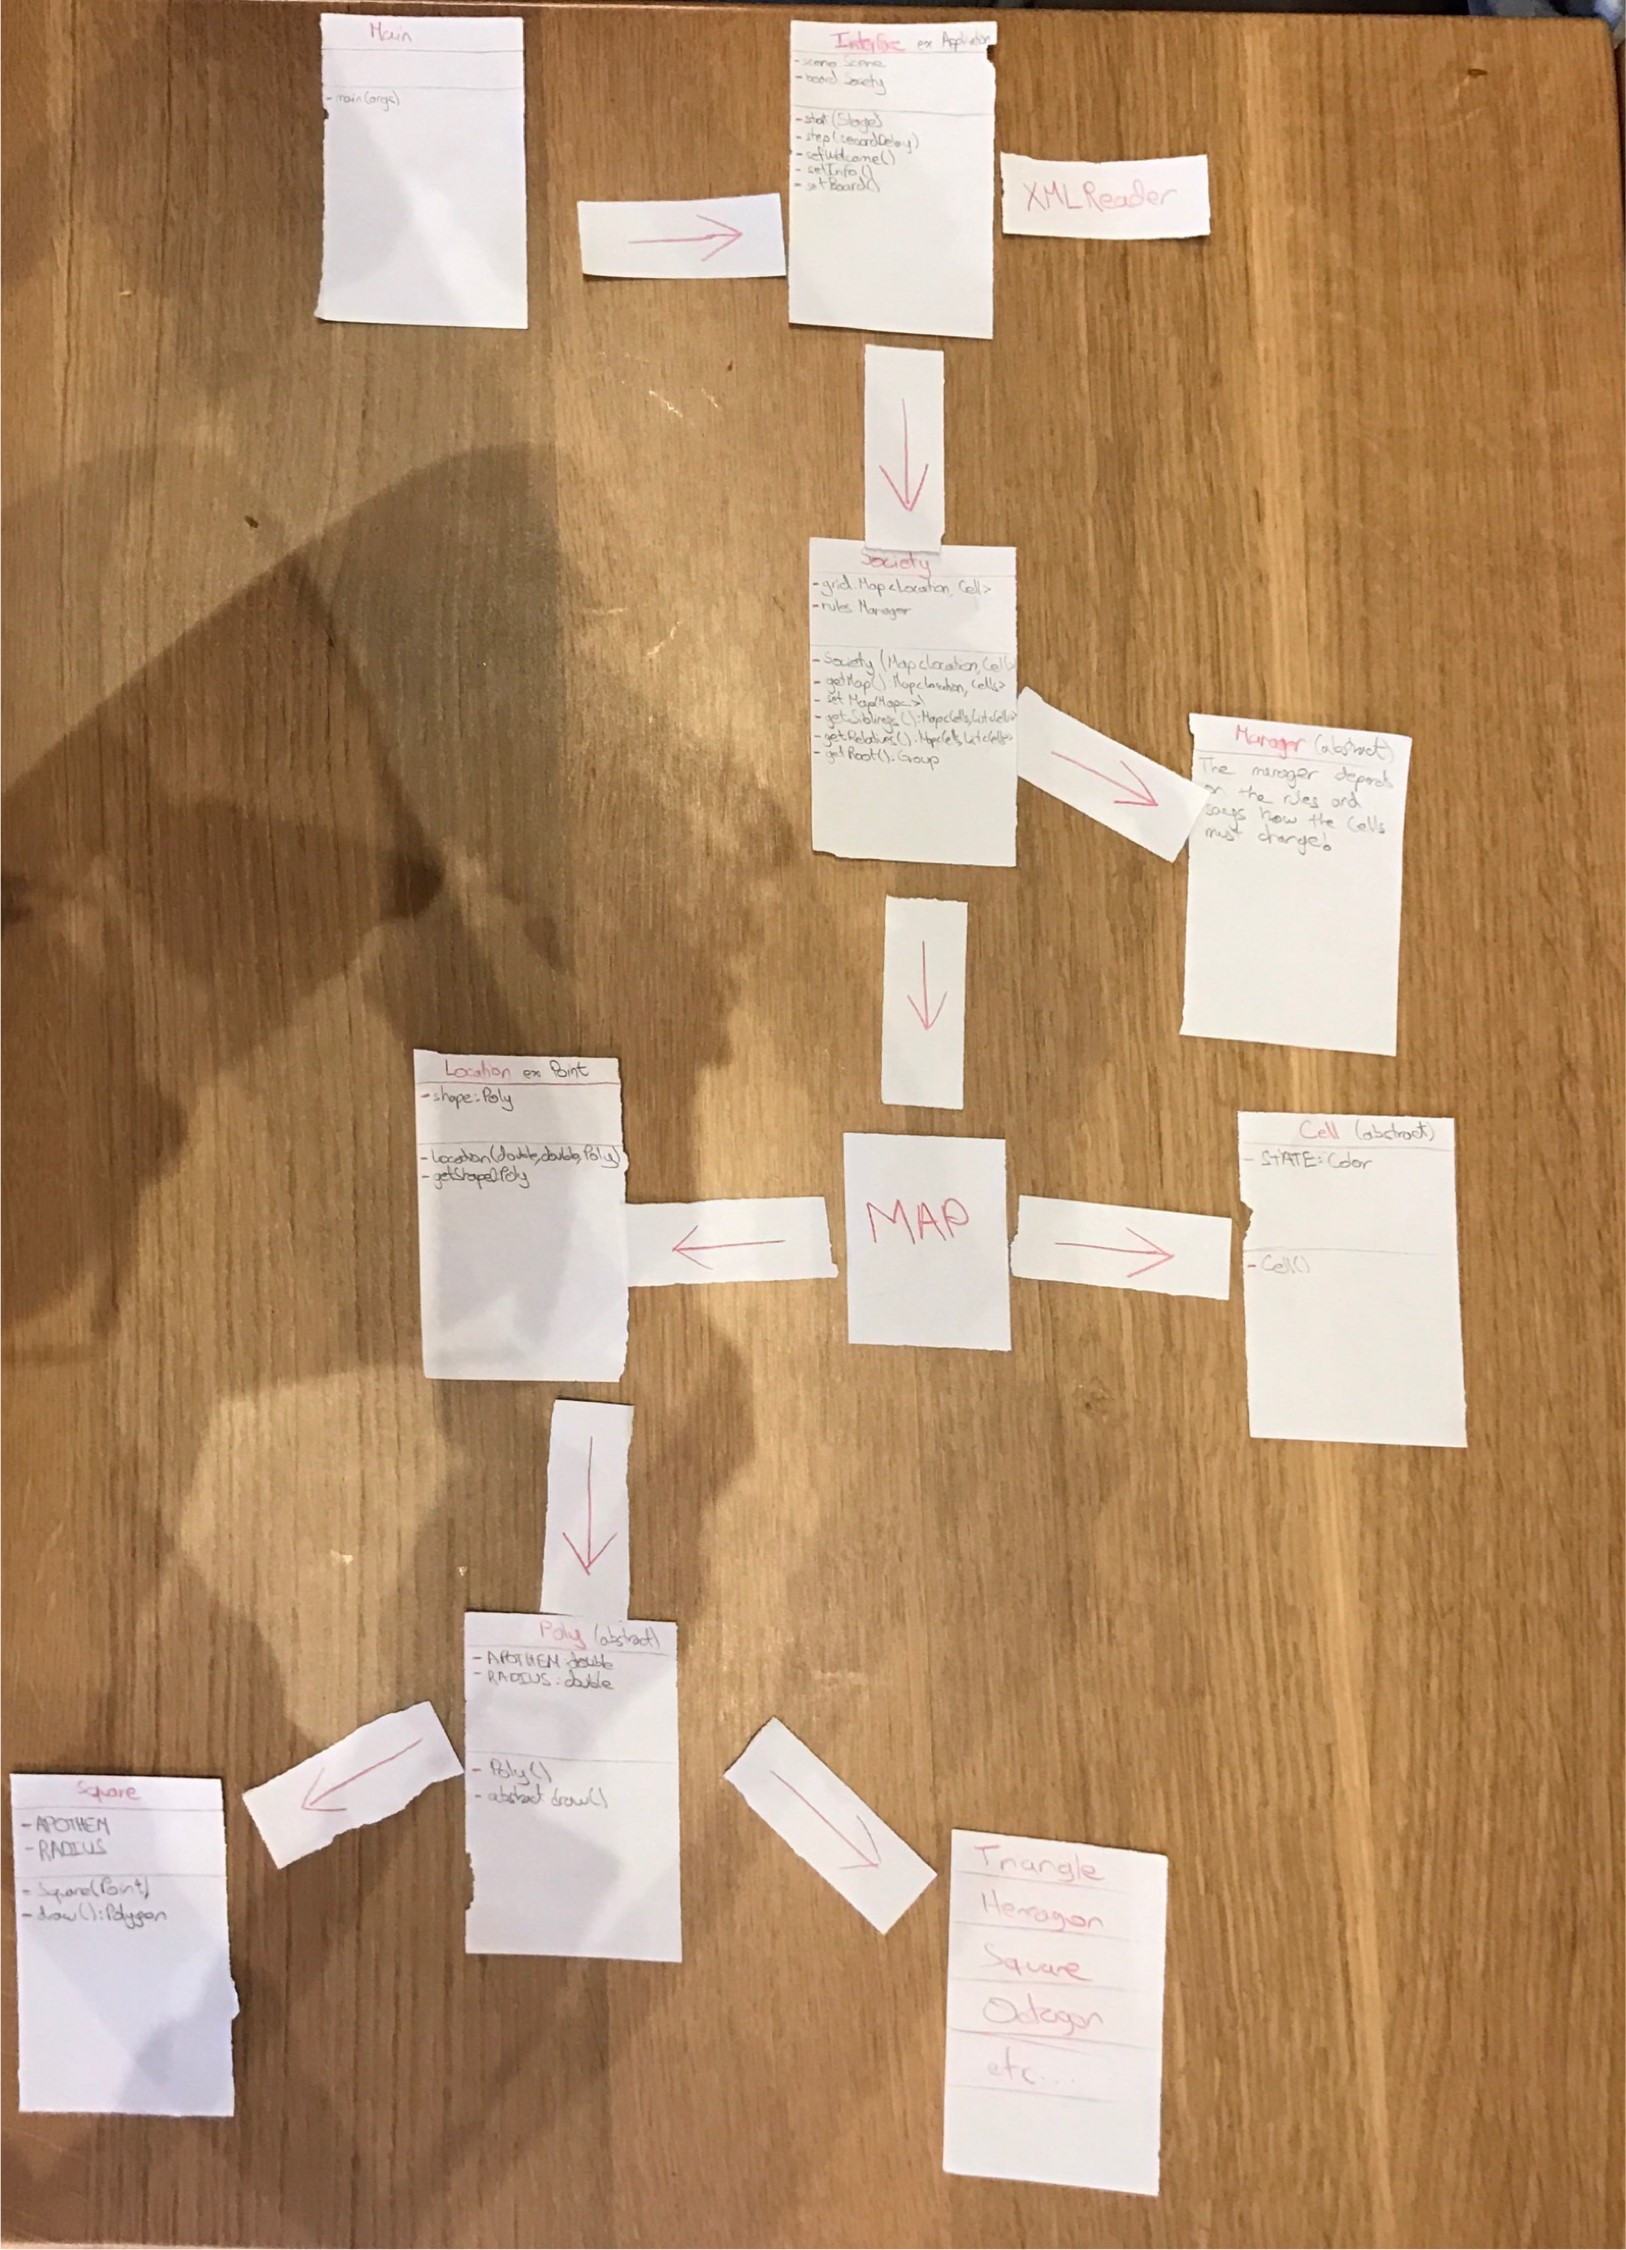 Main
- main(args)
Interface ex Application
- scene Scene
- board Society
- start(Stage)
- step(secondDelay)
- setWelcome()
- setInfo()
- setBoard()
XMLReader
Society
- grid: Map<Location, Cell>
- rules Manager
- Society (Map<Location, Cell>
- getMap(): Map<Location, Cells>
- set Map(Map<>)
- getSiblings(): Map<Cells, List<Cells>>
- getRelatives(): Map<Cells, List<Cells>>
- getRoot(): Group
Manager (abstract)
The manager depends
on the rules and
says how the Cells
must change!
Location ex Point
- shape: Poly
- Location(double, double, Poly)
- getShape(): Poly
MAP
Cell (abstract)
- STATE: Color
- Cell()
Poly (abstract)
- APOTHEM: double
- RADIUS: double
- Poly()
- abstract draw()
Square
- APOTHEM
- RADIUS
- Square(Point)
- draw(): Polygon
Triangle
Hexagon
Square
Octagon
etc...